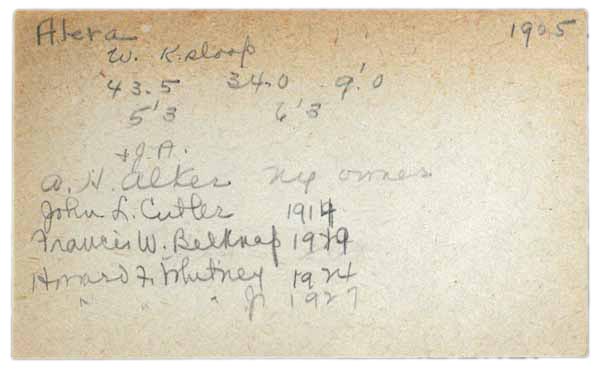 Alera 1905
W. K. sloop
43.5 34.0 9'.0
5'3 6'3
+ J. A.
A. H. Alker NY owner
John L. Cutler 1914
Francis W. Belknap 1919
Howard F. Whitney 1924
" " " Jr 1927